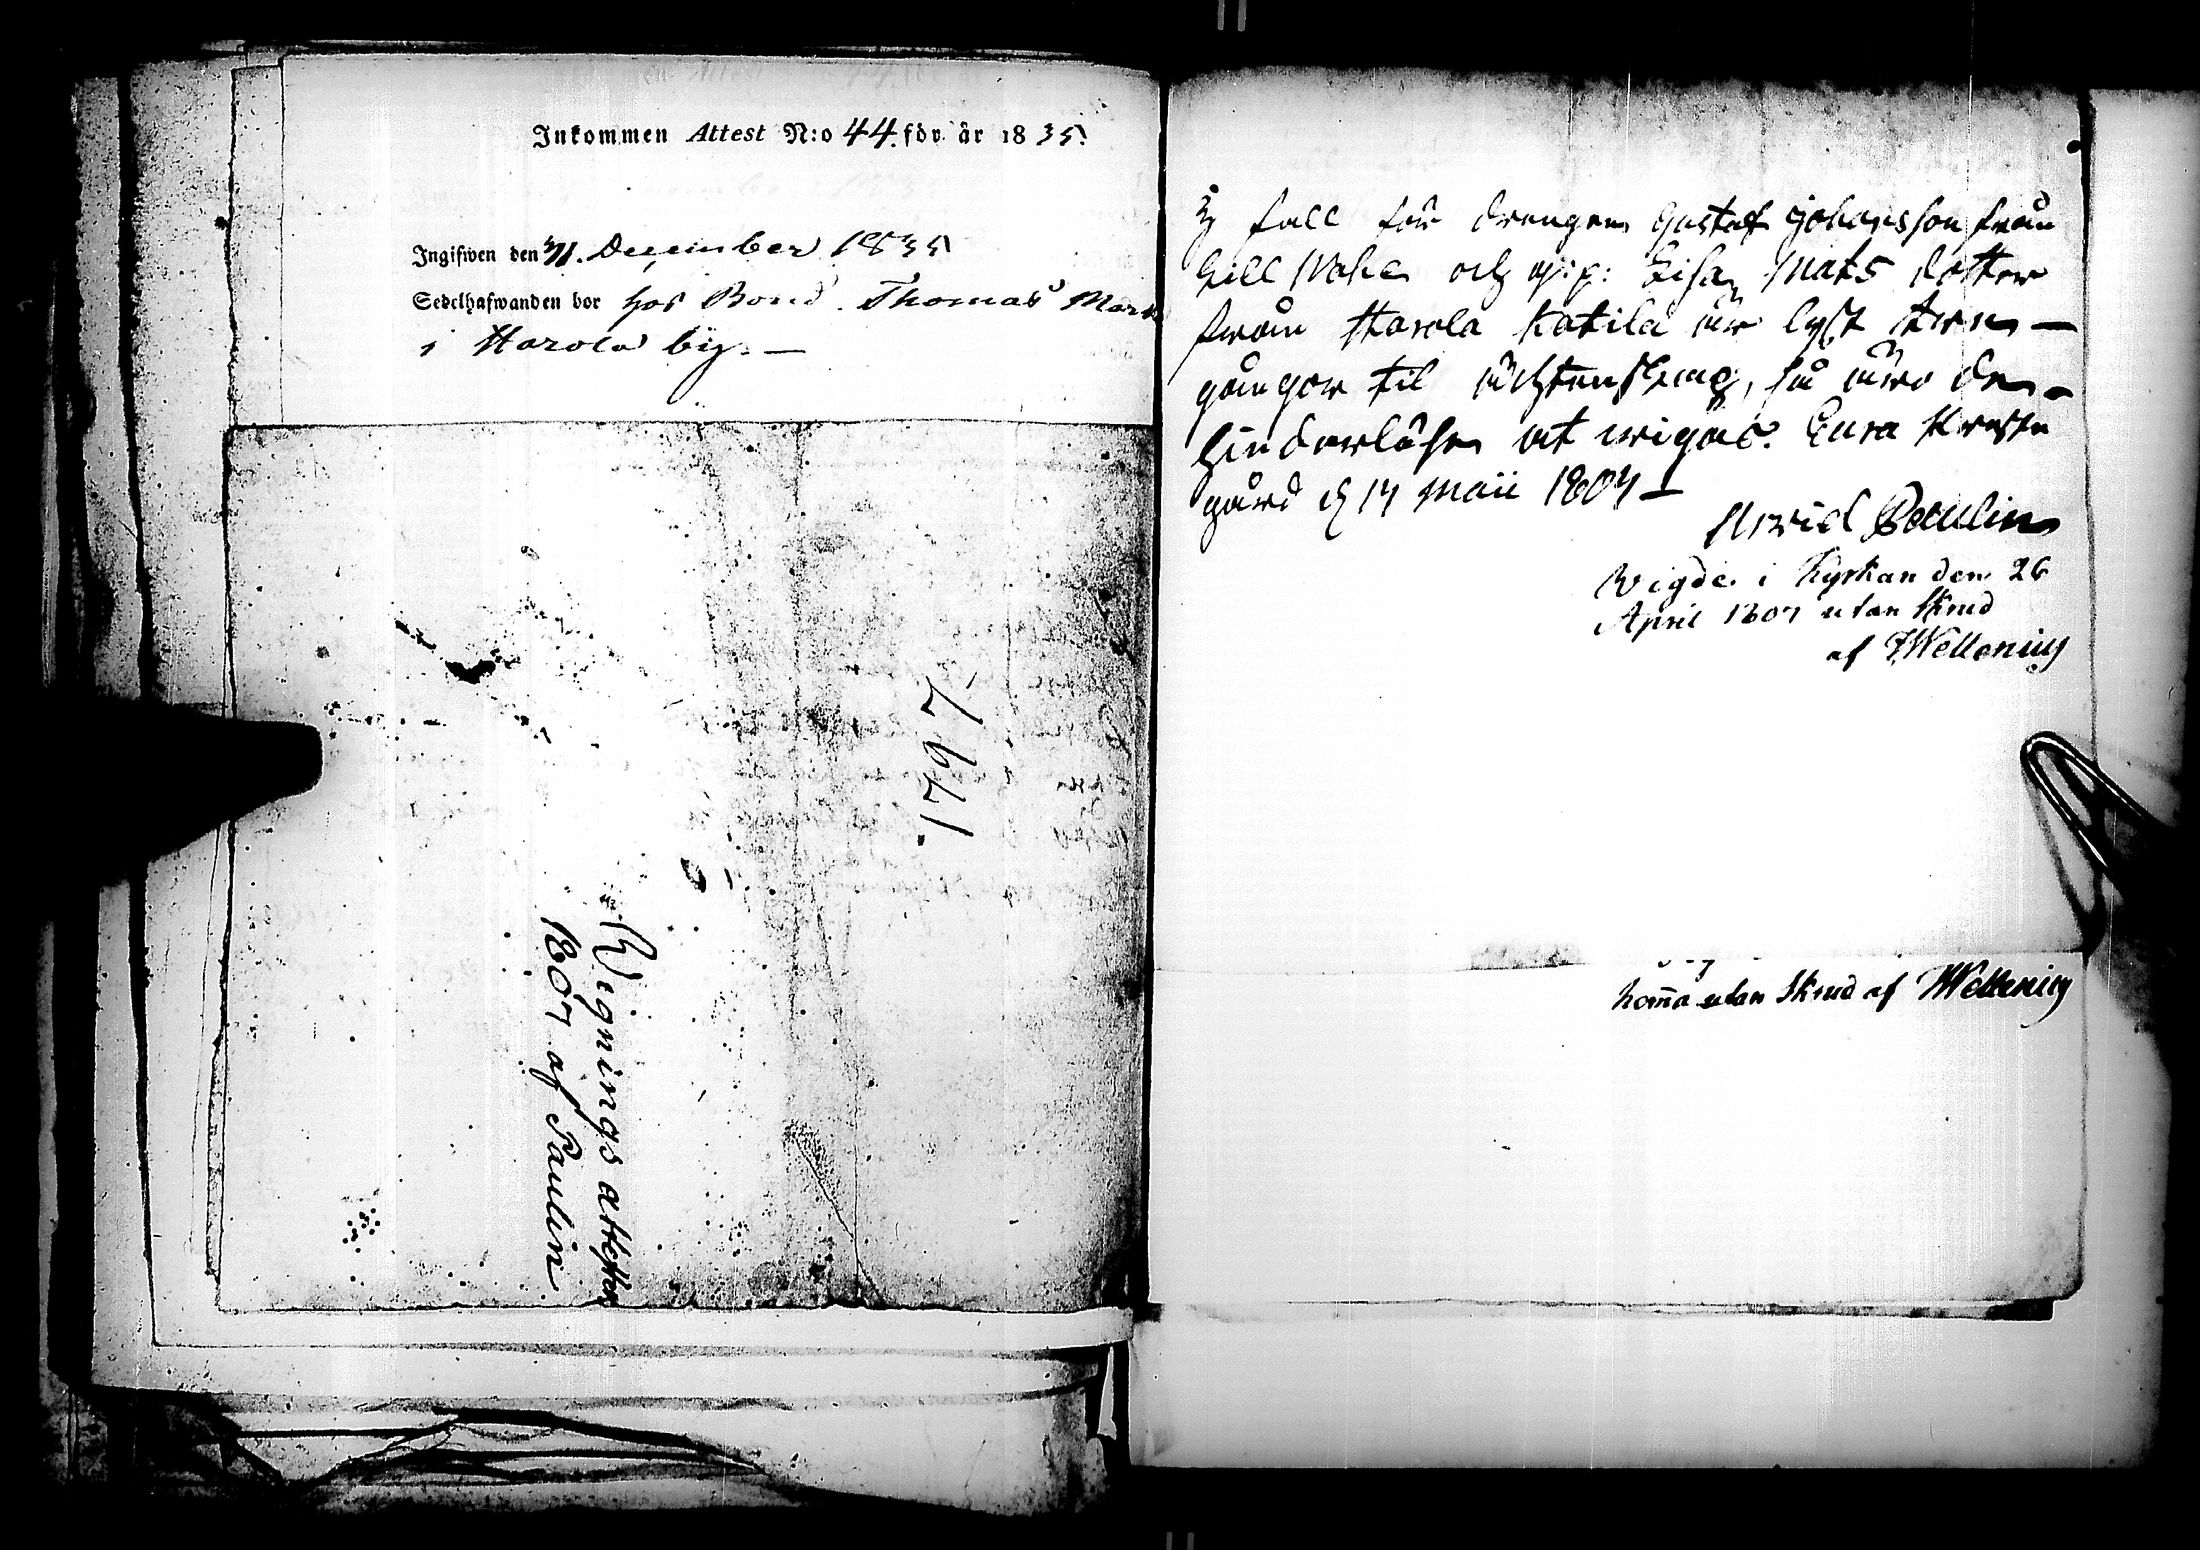 Inkommen Attest N:o 44. för år 1835.
Ingifwen den 31. December 1835
Sedelhafwanden bor hos Bond. Thomas
i Harola by. —
1797
Wignings attester
1807 af Paulin
fall för drengen Gustaf Johansson från
och p: p: Lisa Mats dotter
från Harola Katila är lyst tren —
gångor til ächtenskap, så äro de
hinderlöse at wigas. Eura Prestegård
d 17 Maii 1807 —
Arvid Paulin
Wigde i Kyrkan den 26
April 1807 utan Skrud
af Wellenius
homa utan Skrud af Wellenius